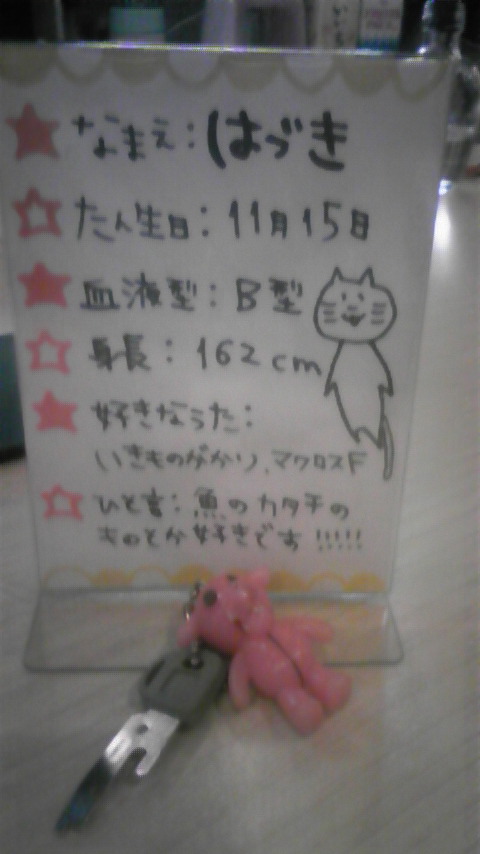 なまえ：はづき
たん生日：11月15日
血液型：B型
身長：162cm
好きなうた：
いきものがかり、マクロスF
ひと言：魚のカタチの
ものとか好きです!!!!!